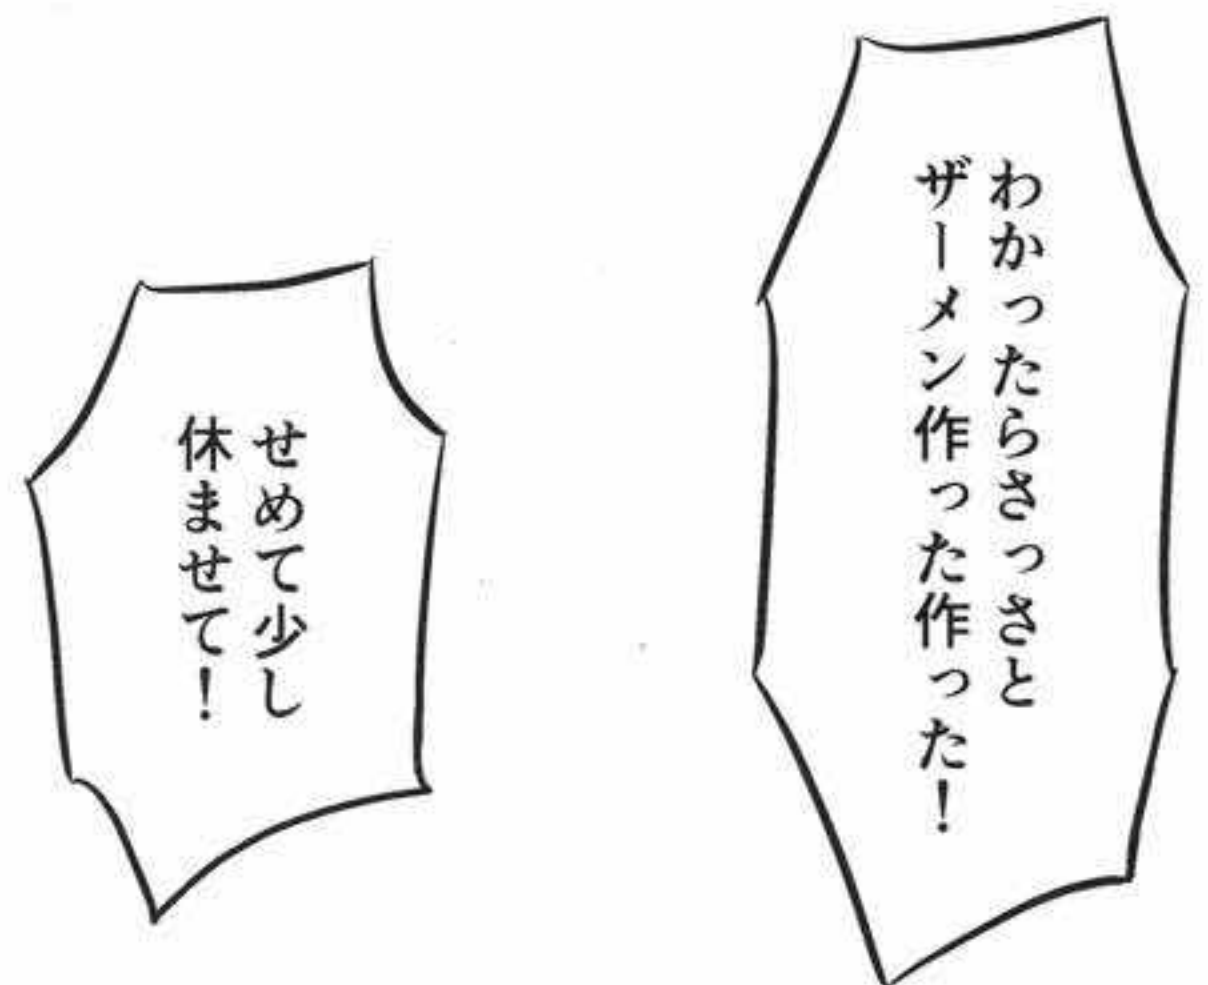 わかったらさっさと
ザーメン作った作った！
せめて少し
休ませて！